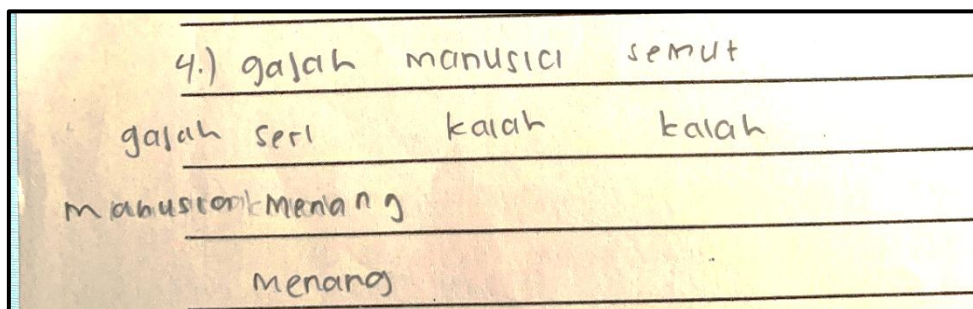 4.) gajah manusia semut
gajah seri kalah kalah
manusia menang
menang